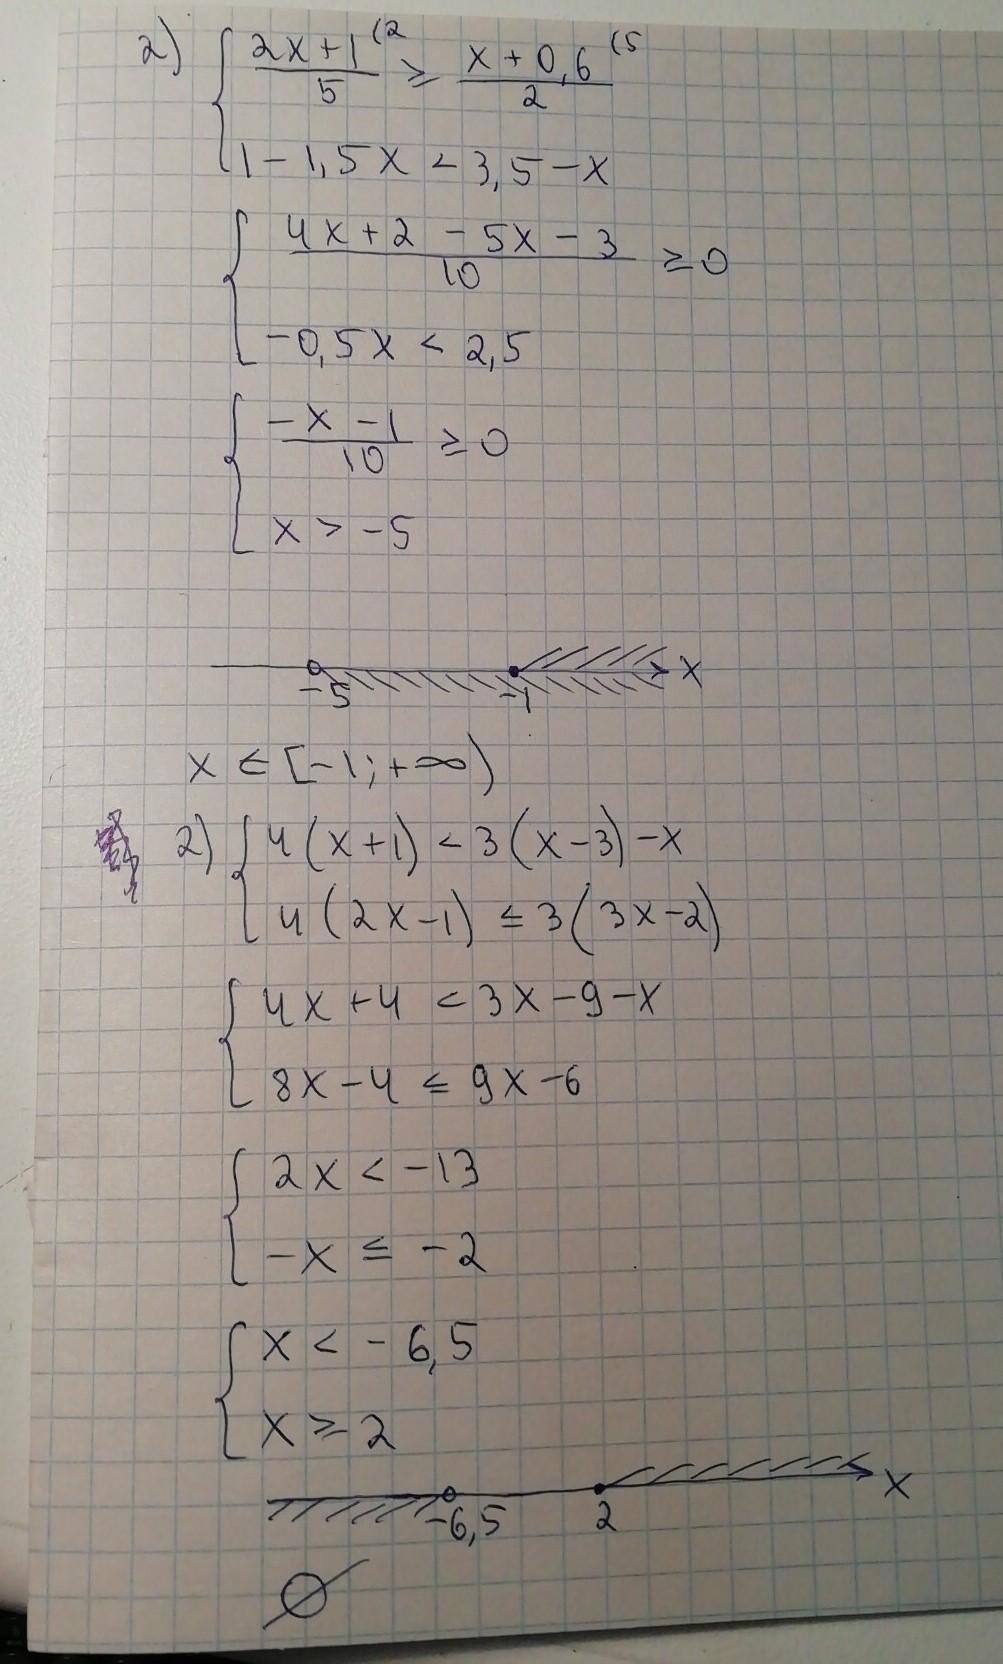 2) { (2x+1)/5 (2 ≥ (x+0,6)/2 (5
1-1,5x < 3,5-x
{ (4x+2 - 5x - 3)/10 ≥ 0
-0,5x < 2,5
{ (-x -1)/10 ≥ 0
x > -5
-5 -1 x
x ∈ [-1; +∞)
2) { 4(x+1) < 3(x-3)-x
4(2x-1) ≤ 3(3x-2)
{ 4x+4 < 3x-9-x
8x-4 ≤ 9x-6
{ 2x < -13
-x ≤ -2
{ x < -6,5
x ≥ 2
-6,5 2 x
∅